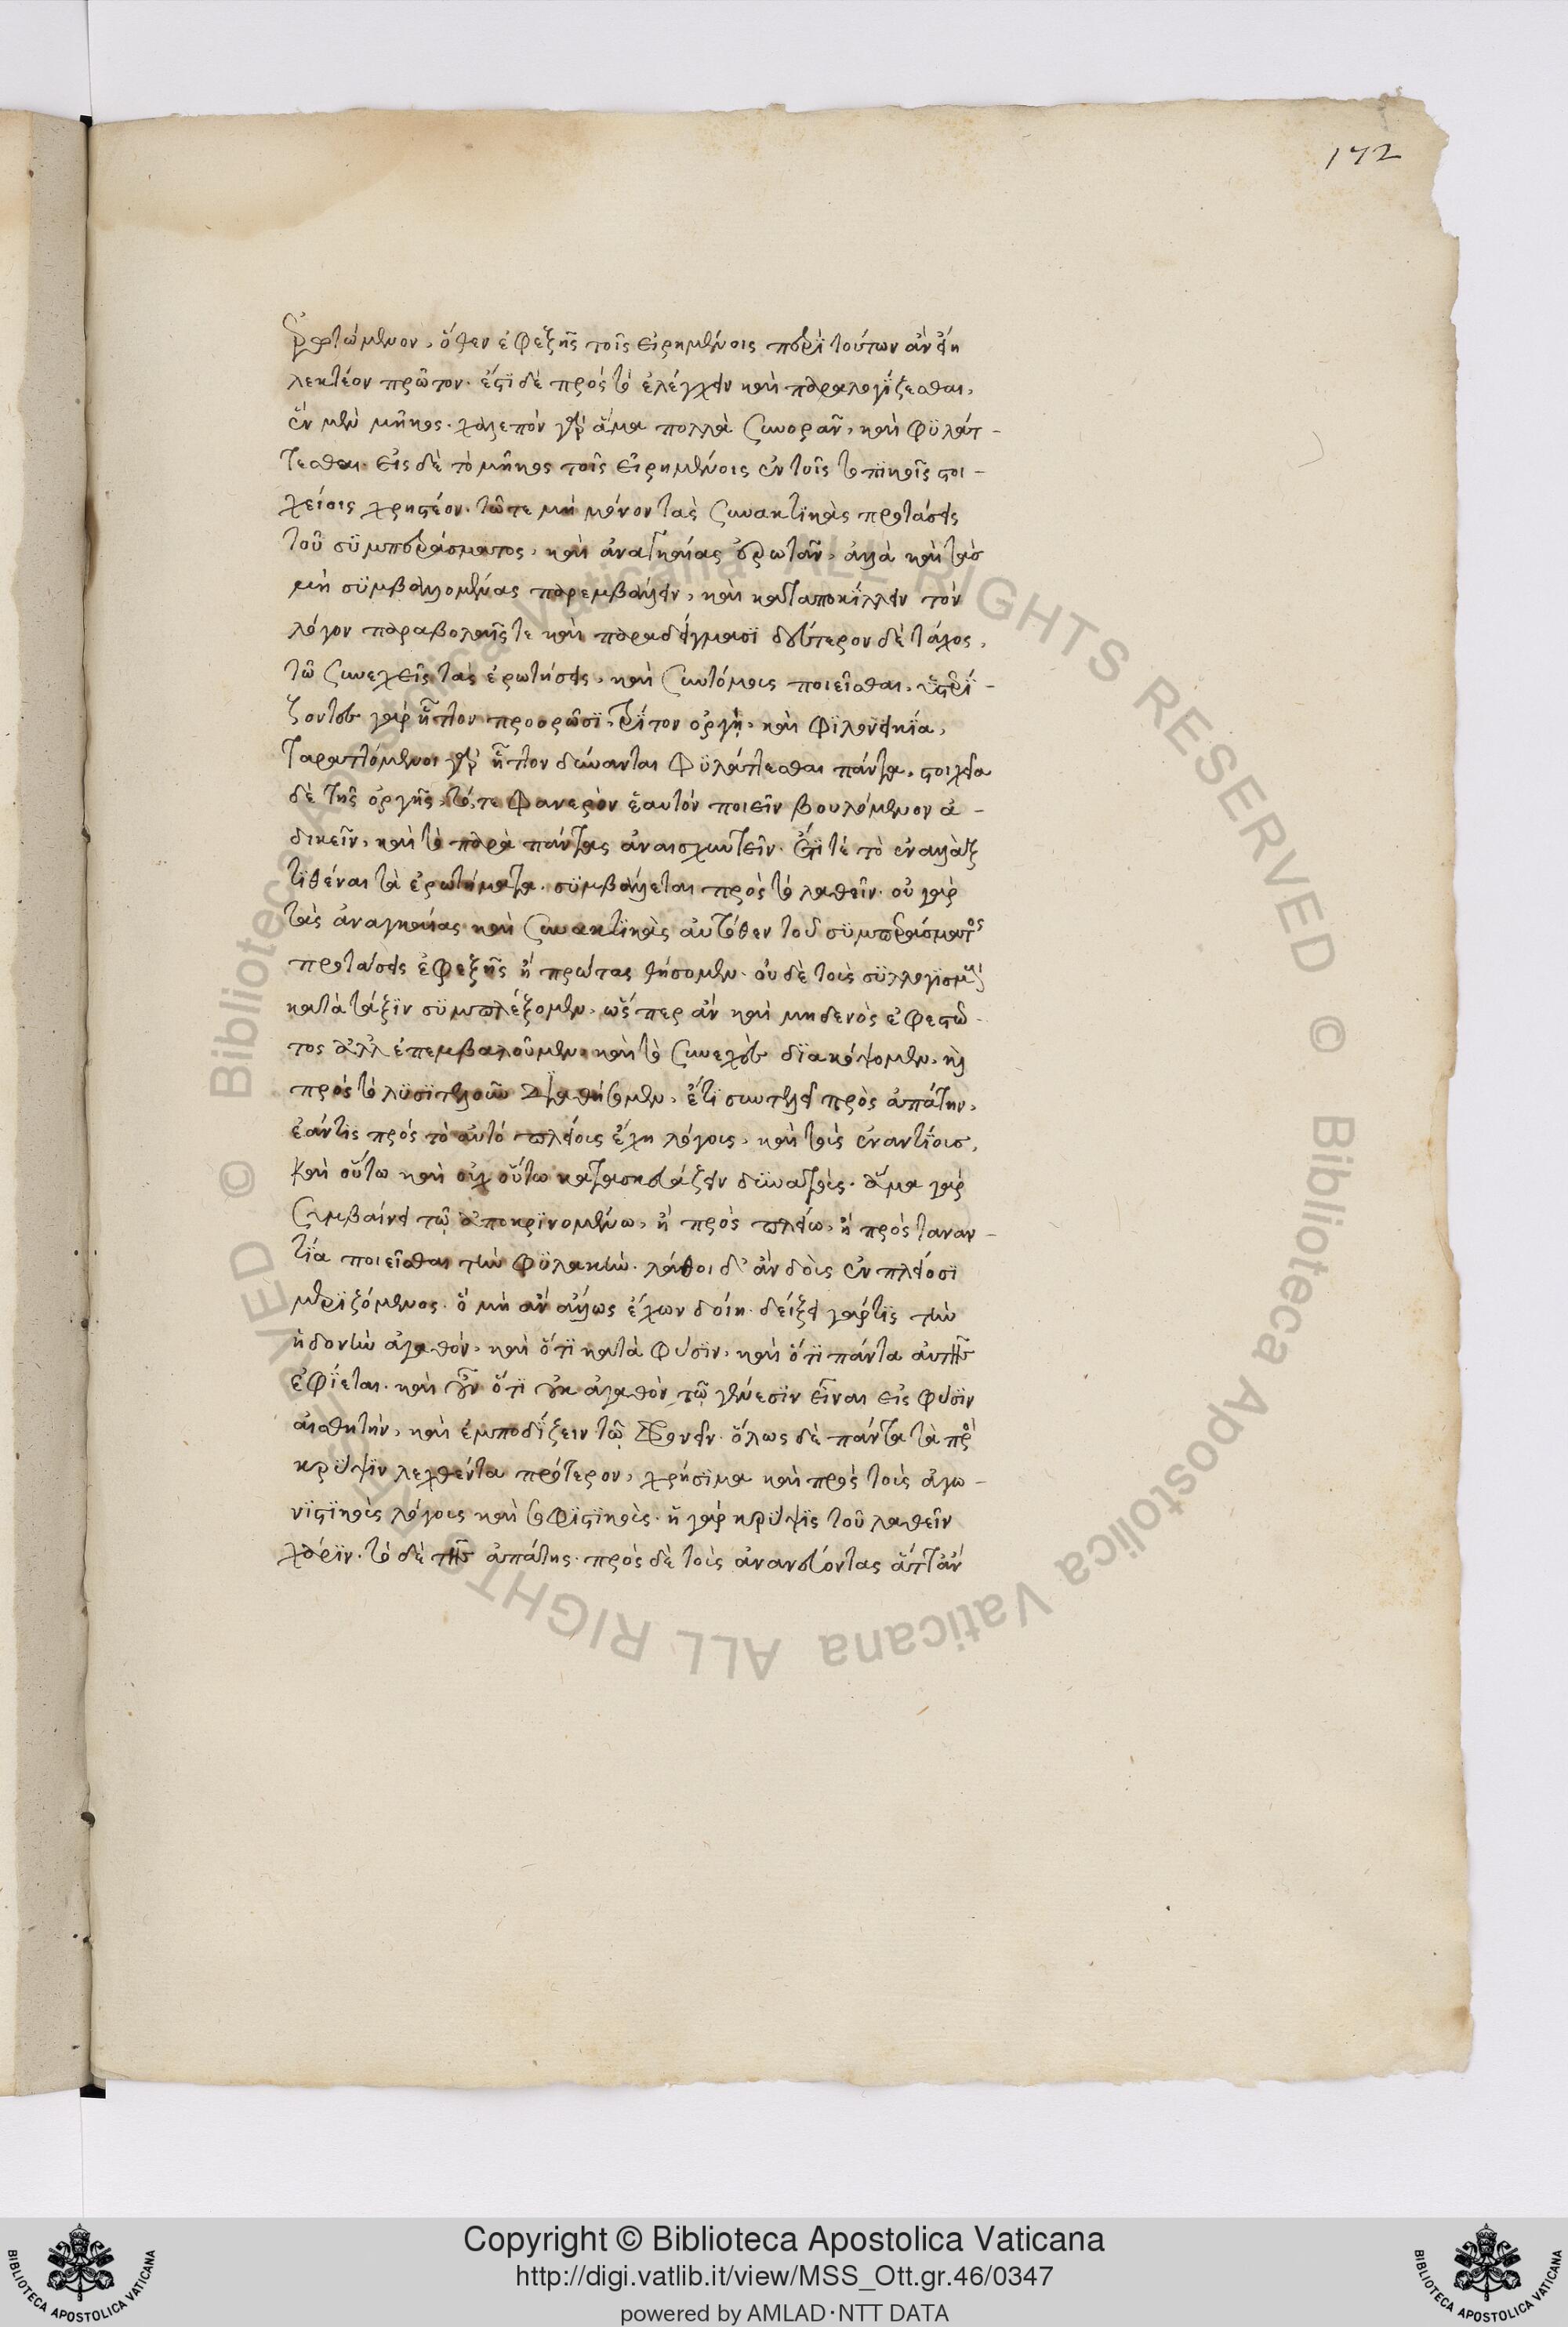 172
ἐρωτώμενον. ὅθεν ἐφεξῆς τοῖς εἰρημένοις περὶ τούτων ἂν εἴη
λεκτέον πρῶτον. ἔστι δὲ πρὸς τὸ ἐλέγχειν καὶ παραλογίζεσθαι,
ἓν μὲν μῆκος. χαλεπὸν γὰρ ἅμα πολλὰ συνορᾶν, καὶ φυλάτ-
τεσθαι. εἰς δὲ τὸ μῆκος τοῖς εἰρημένοις ἐν τοῖς τοπικοῖς στοι-
χείοις χρηστέον. τῶτε μὴ μόνον τὰς συνακτικὰς προτάσεις
τοῦ συμπεράσματος, καὶ ἀναγκαίας ἐρωτᾶν, ἀλλὰ καὶ τὰσ
μὴ συμβαλλομένας παρεμβάλλειν, καὶ καταποικίλλειν τὸν
λόγον παραβολαῖς τε καὶ παραδείγμασι δεύτερον δὲ τάχος,
τῶ συνεχεῖς τὰς ἐρωτήσεις, καὶ συντόμους ποιεῖσθαι. ὑστερί-
ζοντες γὰρ ἧττον προορῶσι, τρίτον ὀργὴ, καὶ φιλονεικία,
ταραττόμενοι γὰρ ἧττον δύνανται φυλάττεσθαι πάντα, στοιχεῖα
δὲ τῆς ὀργῆς, τό, τε φανερὸν ἑαυτὸν ποιεῖν βουλόμενον ἀ-
δικεῖν, καὶ τὸ παρὰ πάντας ἀναισχυντεῖν. ἔτι τέ τὸ ἐναλλὰξ
τιθέναι τὰ ἐρωτήματα. συμβάλλεται πρὸς τὸ λαθεῖν. οὐ γὰρ
τὰς ἀναγκαίας καὶ συνακτικὰς αὐτόθεν τοῦ συμπεράσματος
προτάσεις ἐφεξῆς ἢ πρώτας θήσομεν. οὐδὲ τοὺς συλλογισμοὺς
κατὰ τάξιν συμπλέξομεν, ὥσπερ ἂν καὶ μηδενὸς ἐφεστῶ-
τος ἀλλ' ἐπεμβαλοῦμεν καὶ τὸ συνεχὲς διακόψομεν, καὶ
πρὸς τὸ λυσιτελοῦν μεταθήσομεν. ἔτι συντελεῖ πρὸς ἀπάτην,
ἐάν τις πρὸς τὸ αὐτὸ πλείους ἔχη λόγους, καὶ τοὺς ἐναντίουσ,
καὶ οὕτω καὶ οὐχ οὕτω κατασκευάζειν δυνατοὺς. ἅμα γὰρ
συμβαίνει τῷ ἀποκρινομένω, ἢ πρὸς πλείω, ἢ πρὸς τἀναν-
τία ποιεῖσθαι τὴν φυλακὴν. λάθοι δ' ἂν δοὺς ἐν πλείοσι
μεριζόμενος. ὃ μὴ ἂν ἄλλως ἔχων δοίη. δείξει γάρ τις τὴν
ἡδονὴν ἀγαθόν, καὶ ὅτι κατὰ φύσιν, καὶ ὅτι πάντα αὐτῆς
ἐφίεται. καὶ οὖν ὅτι οὐκ ἀγαθὸν τῷ γένεσιν εἶναι εἰς φύσιν
αἰσθητήν, καὶ ἐμποδίζειν τῷ φρονεῖν. ὅλως δὲ πάντα τὰ πρὸς
κρύψιν λεχθέντα πρότερον, χρήσιμα καὶ πρὸς τοὺς ἀγω-
νιστικοὺς λόγους καὶ σοφιστικοὺς. ἡ γὰρ κρύψις τοῦ λαθεῖν
χάριν. τὸ δὲ τῆς ἀπάτης. πρὸς δὲ τοὺς ἀνανεύοντας ἅττ' ἂν
Copyright © Biblioteca Apostolica Vaticana
http://digi.vatlib.it/view/MSS_Ott.gr.46/0347
powered by AMLAD·NTT DATA
BIBLIOTECA APOSTOLICA VATICANA
BIBLIOTECA APOSTOLICA VATICANA
© Biblioteca Apostolica Vaticana ALL RIGHTS RESERVED © Biblioteca Apostolica Vaticana ALL RIGHTS RESERVED